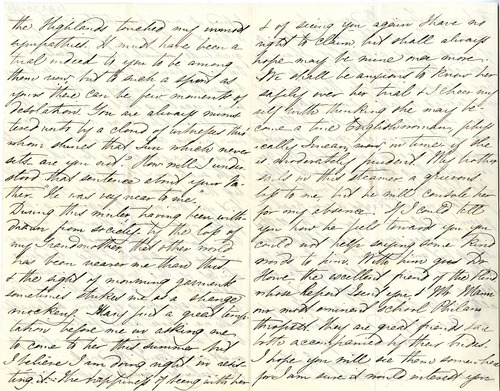 the Highlands touched my inmost
sympathies. It must have been a
trial indeed to you to be among
them now, but to such a spirit as
yours there can be few moments of
desolation. You are always minis
tered unto by a cloud of witnesses thro
whom shines that Sun which never
sets are you not." How well I under
stood that sentence about your fa-
ther, "He was very near to me."
During this winter, having been with-
drawn from society, by the loss of
my Grandmother, that other world
has been nearer me than this
& the sight of mourning garments
sometimes strikes me as a strange
mockery. Mary put a great temp
tation before me in asking me
to come to her this summer but
I believe I am doing right in resis
ting it. The happiness of being with her
& of seeing you again I have no
right to claim, but shall always
hope may be mine once more.
We shall be anxious to know her
safely over her trial & I cheer my
self with thinking she may be
come a true Englishwoman, phys
ically I mean, now, in time, if she
is moderately prudent. My brother
sails in this steamer a grievous
loss to me, but he will console her
for my absence. If I could tell
you how he feels toward you you
could not help saying some kind
words to him. With him goes Dr
Howe the excellent friend of the Blind
whose Report I send you, & Mr Mann
our most eminent school Philan
thropist. they are great friends &
both accompanied by their brides.
I hope you will see them somewhere
for I am sure it would interest you